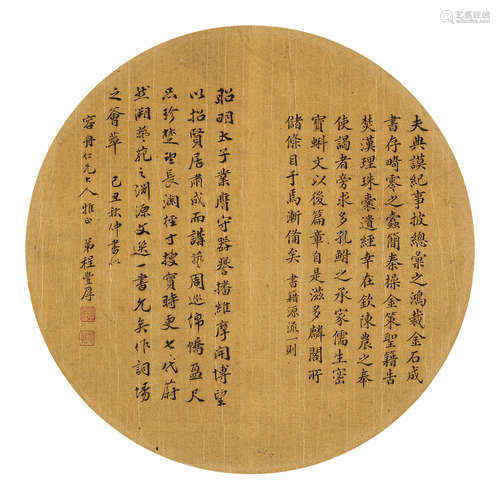 夫典謨紀事披總彙之鴻裁金石成
書存畸零之蠹簡秦操金策聖籍告
焚漢理珠囊遺經幸在欽陳農之奉
使謁者旁求多孔鮒之承家儒生密
寶蝌文以後篇章自是滋多麟閣所
儲條目于焉漸備矣 書籍源流一則
昭明太子業膺守器譽播維摩開博望
以招賢居肅成而講藝周巡綿嶠盈尺
必珍楚望長瀾徑寸搜寶時更七代蔚
然闢藝苑之淵源文選一書允矣作詞場
之薈萃 己丑秋仲書似
容舟仁兄大人雅正 弟程豐厚